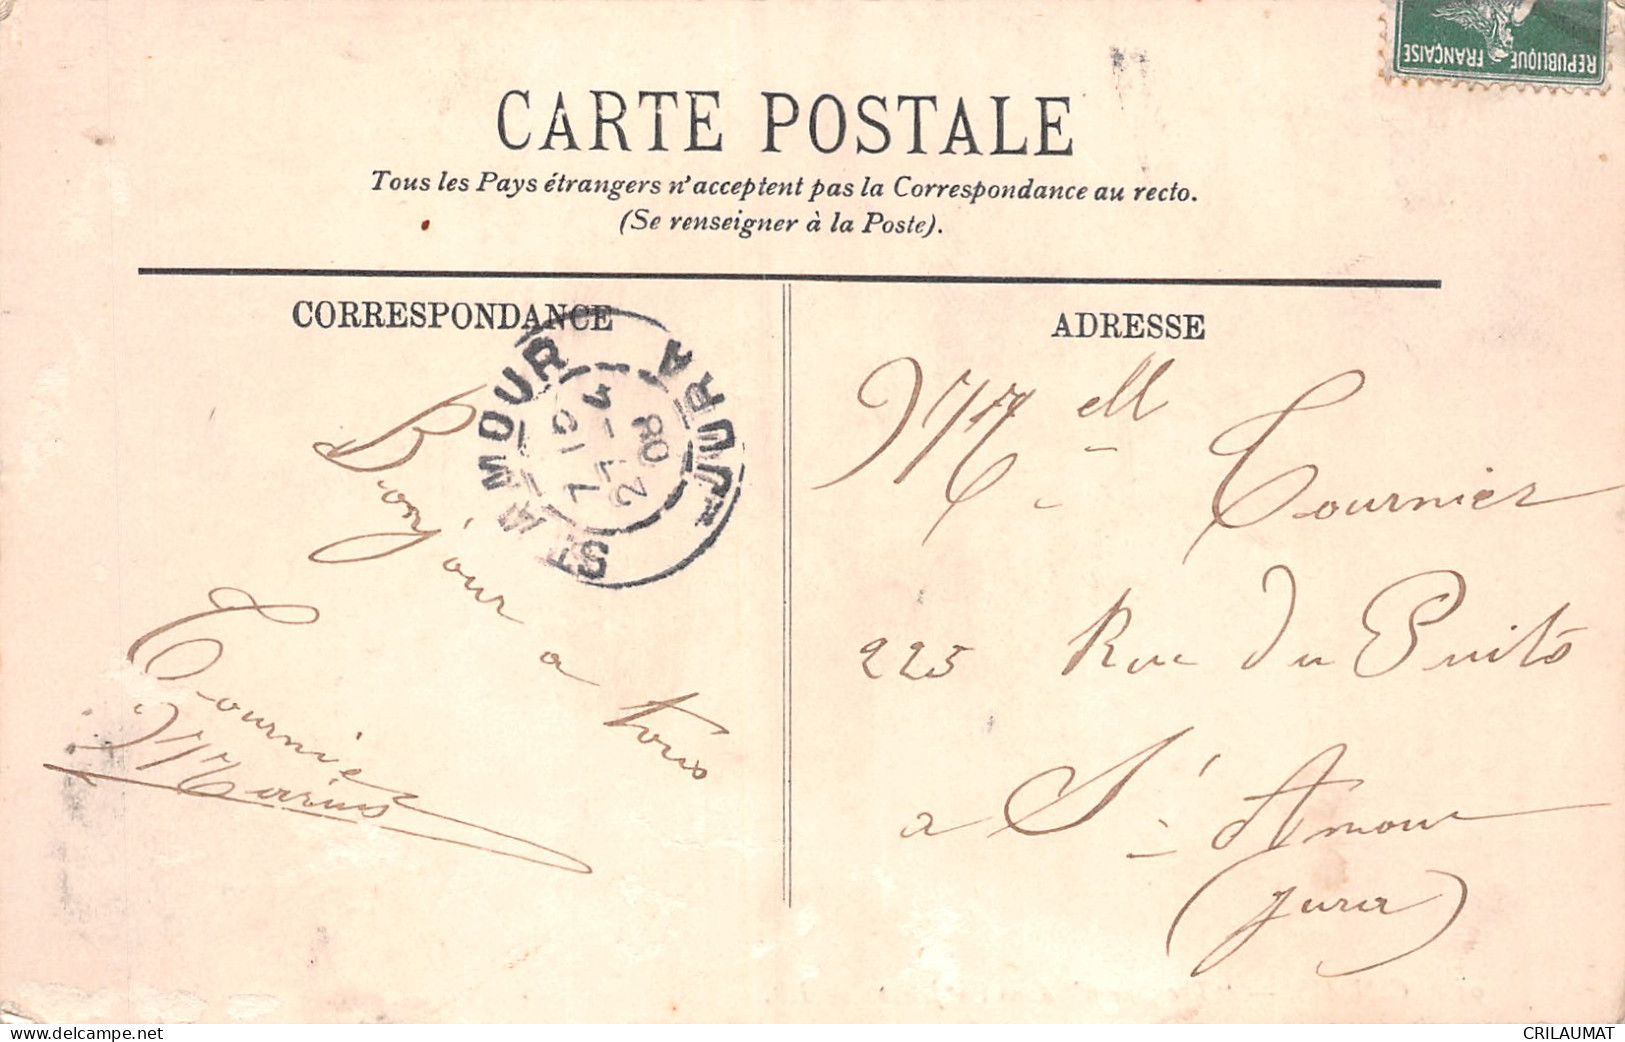 REPUBLIQUE FRANÇAISE
CARTE POSTALE
Tous les Pays étrangers n'acceptent pas la Correspondance au recto.
(Se renseigner à la Poste).
CORRESPONDANCE
ST AMOUR JURA
27 - 4
08
Bonjour a tous
Tournier
Marius
ADRESSE
Mlle Tournier
225 Rue du Puits
a St Amour
(Jura)
www.delcampe.net
CRILAUMAT